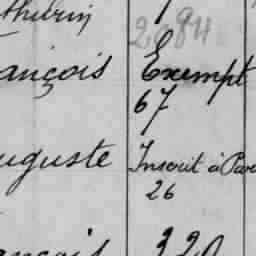 thurin
2084
ançois Exempt
67
uguste Inscrit à Par
26
ançois 320